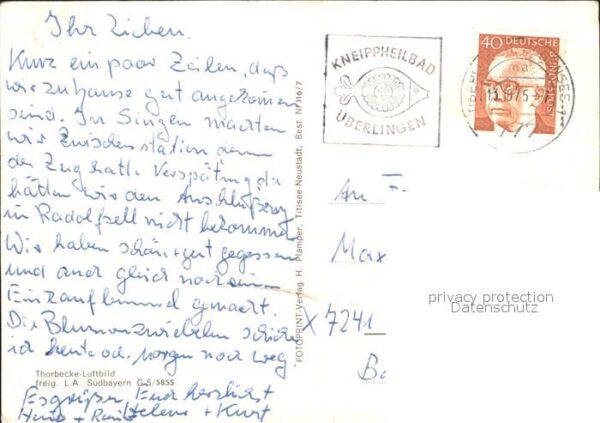 Ihr Lieben.
Kurz ein paar Zeilen, daß
wir zuhause gut angekommen
sind. In Singen machten
wir Zwischenstation denn
der Zug hatte Verspätung, da
hätten wir den Anschlußzug
in Radolfzell nicht bekommen.
Wir haben schön + gut gegessen
und auch gleich noch einen
Einkaufbummel gemacht.
Die Blumenzwiebeln schicke
ich heute od. morgen noch weg
Thorbecke-Luftbild
freig. L.A. Südbayern G 5/5855
Es grüßen Euch herzlichst
Helene + Kurt
"FOTOPRINT-Verlag H. Plamper, Titisee-Neustadt, Best. Nr. 116/7
KNEIPPHEILBAD
ÜBERLINGEN
40 DEUTSCHE
BUNDESPOST
An F
Max
privacy protection
Datenschutz
7241